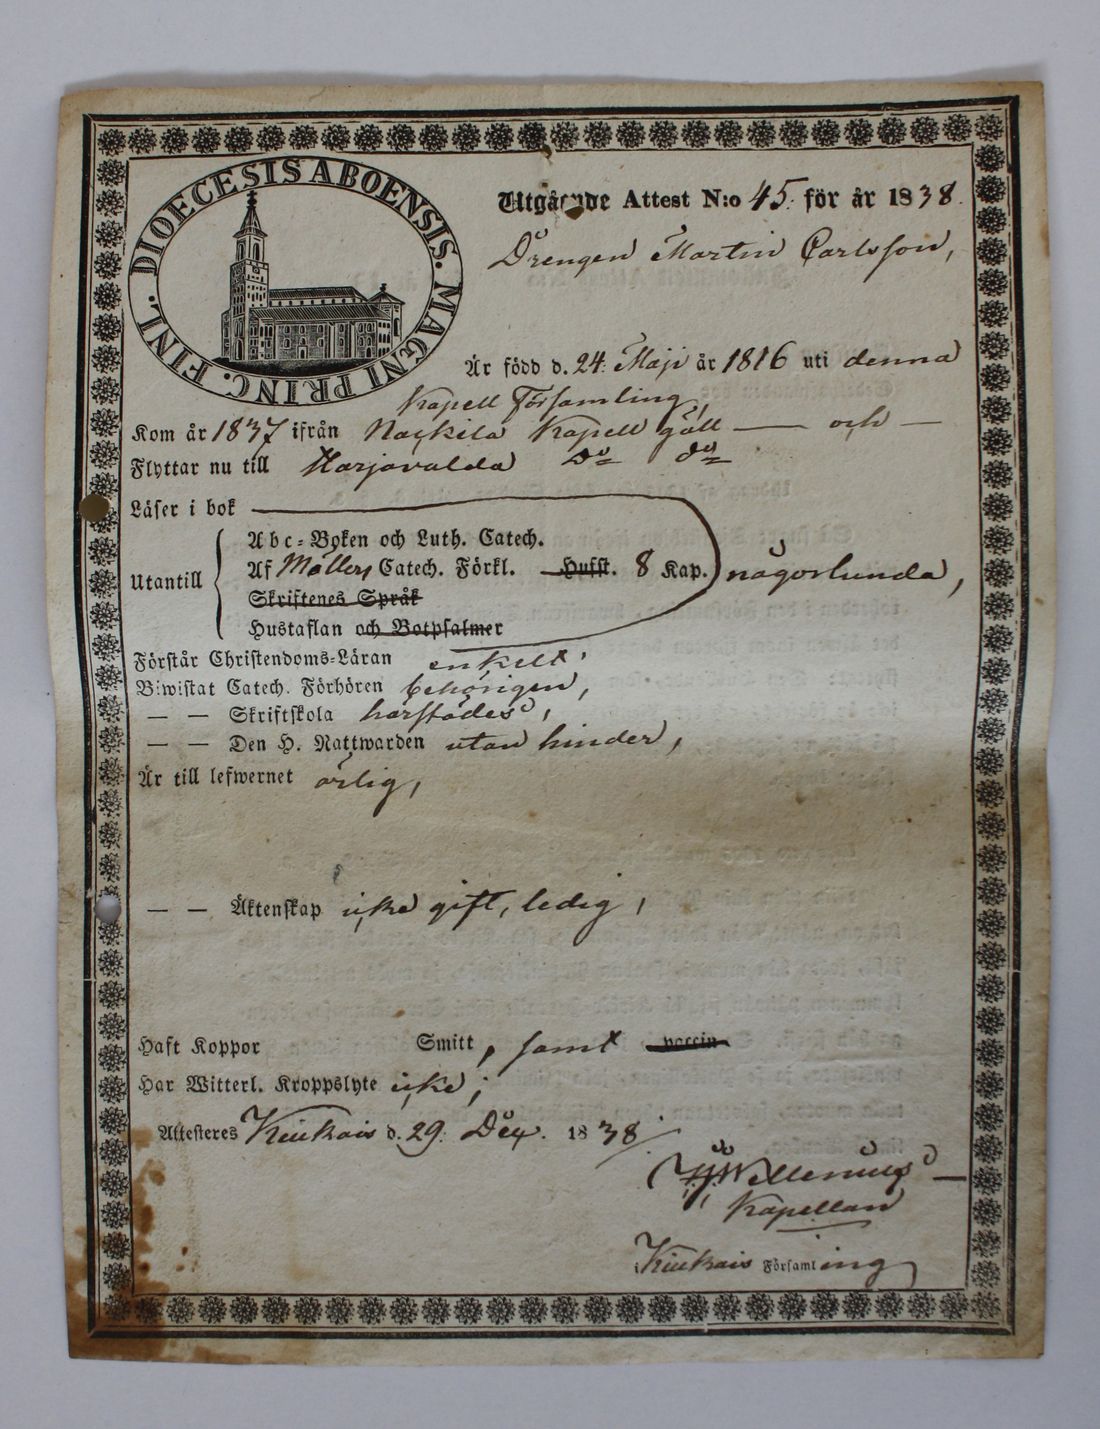 DIOECESIS ABOENSIS. MAGNI PRINC. FINL.
Utgående Attest N:o 45. för år 1838.
Drengen Martin Carlsson,
Är född d. 24. Maji år 1816 uti denna
Kapell Församling,
Kom år 1837 ifrån Nackila Kapell gäll — och —
Flyttar nu till Harjavalda Do do
Läser i bok
Abc-Boken och Luth. Catech.
Utantill Af Möllers Catech. Förkl. Hufst. 8 Kap. någorlunda,
Skriftenes Språk
Hustaflan och Botpsalmer
Förstår Christendoms-Läran enkelt,
Biwistat Catech. Förhören behörigen,
— — Skriftskola härstädes,
— — Den H. Nattwarden utan hinder,
Är till lefwernet ärlig,
— — Äktenskap icke gift, ledig,
Haft Koppor Smitt, samt vaccin
Har Witterl. Kroppslyte icke;
Attesteres Kiukais d. 29. Dec. 1838
Wellenius
Kapellan
i Kiukais Församling